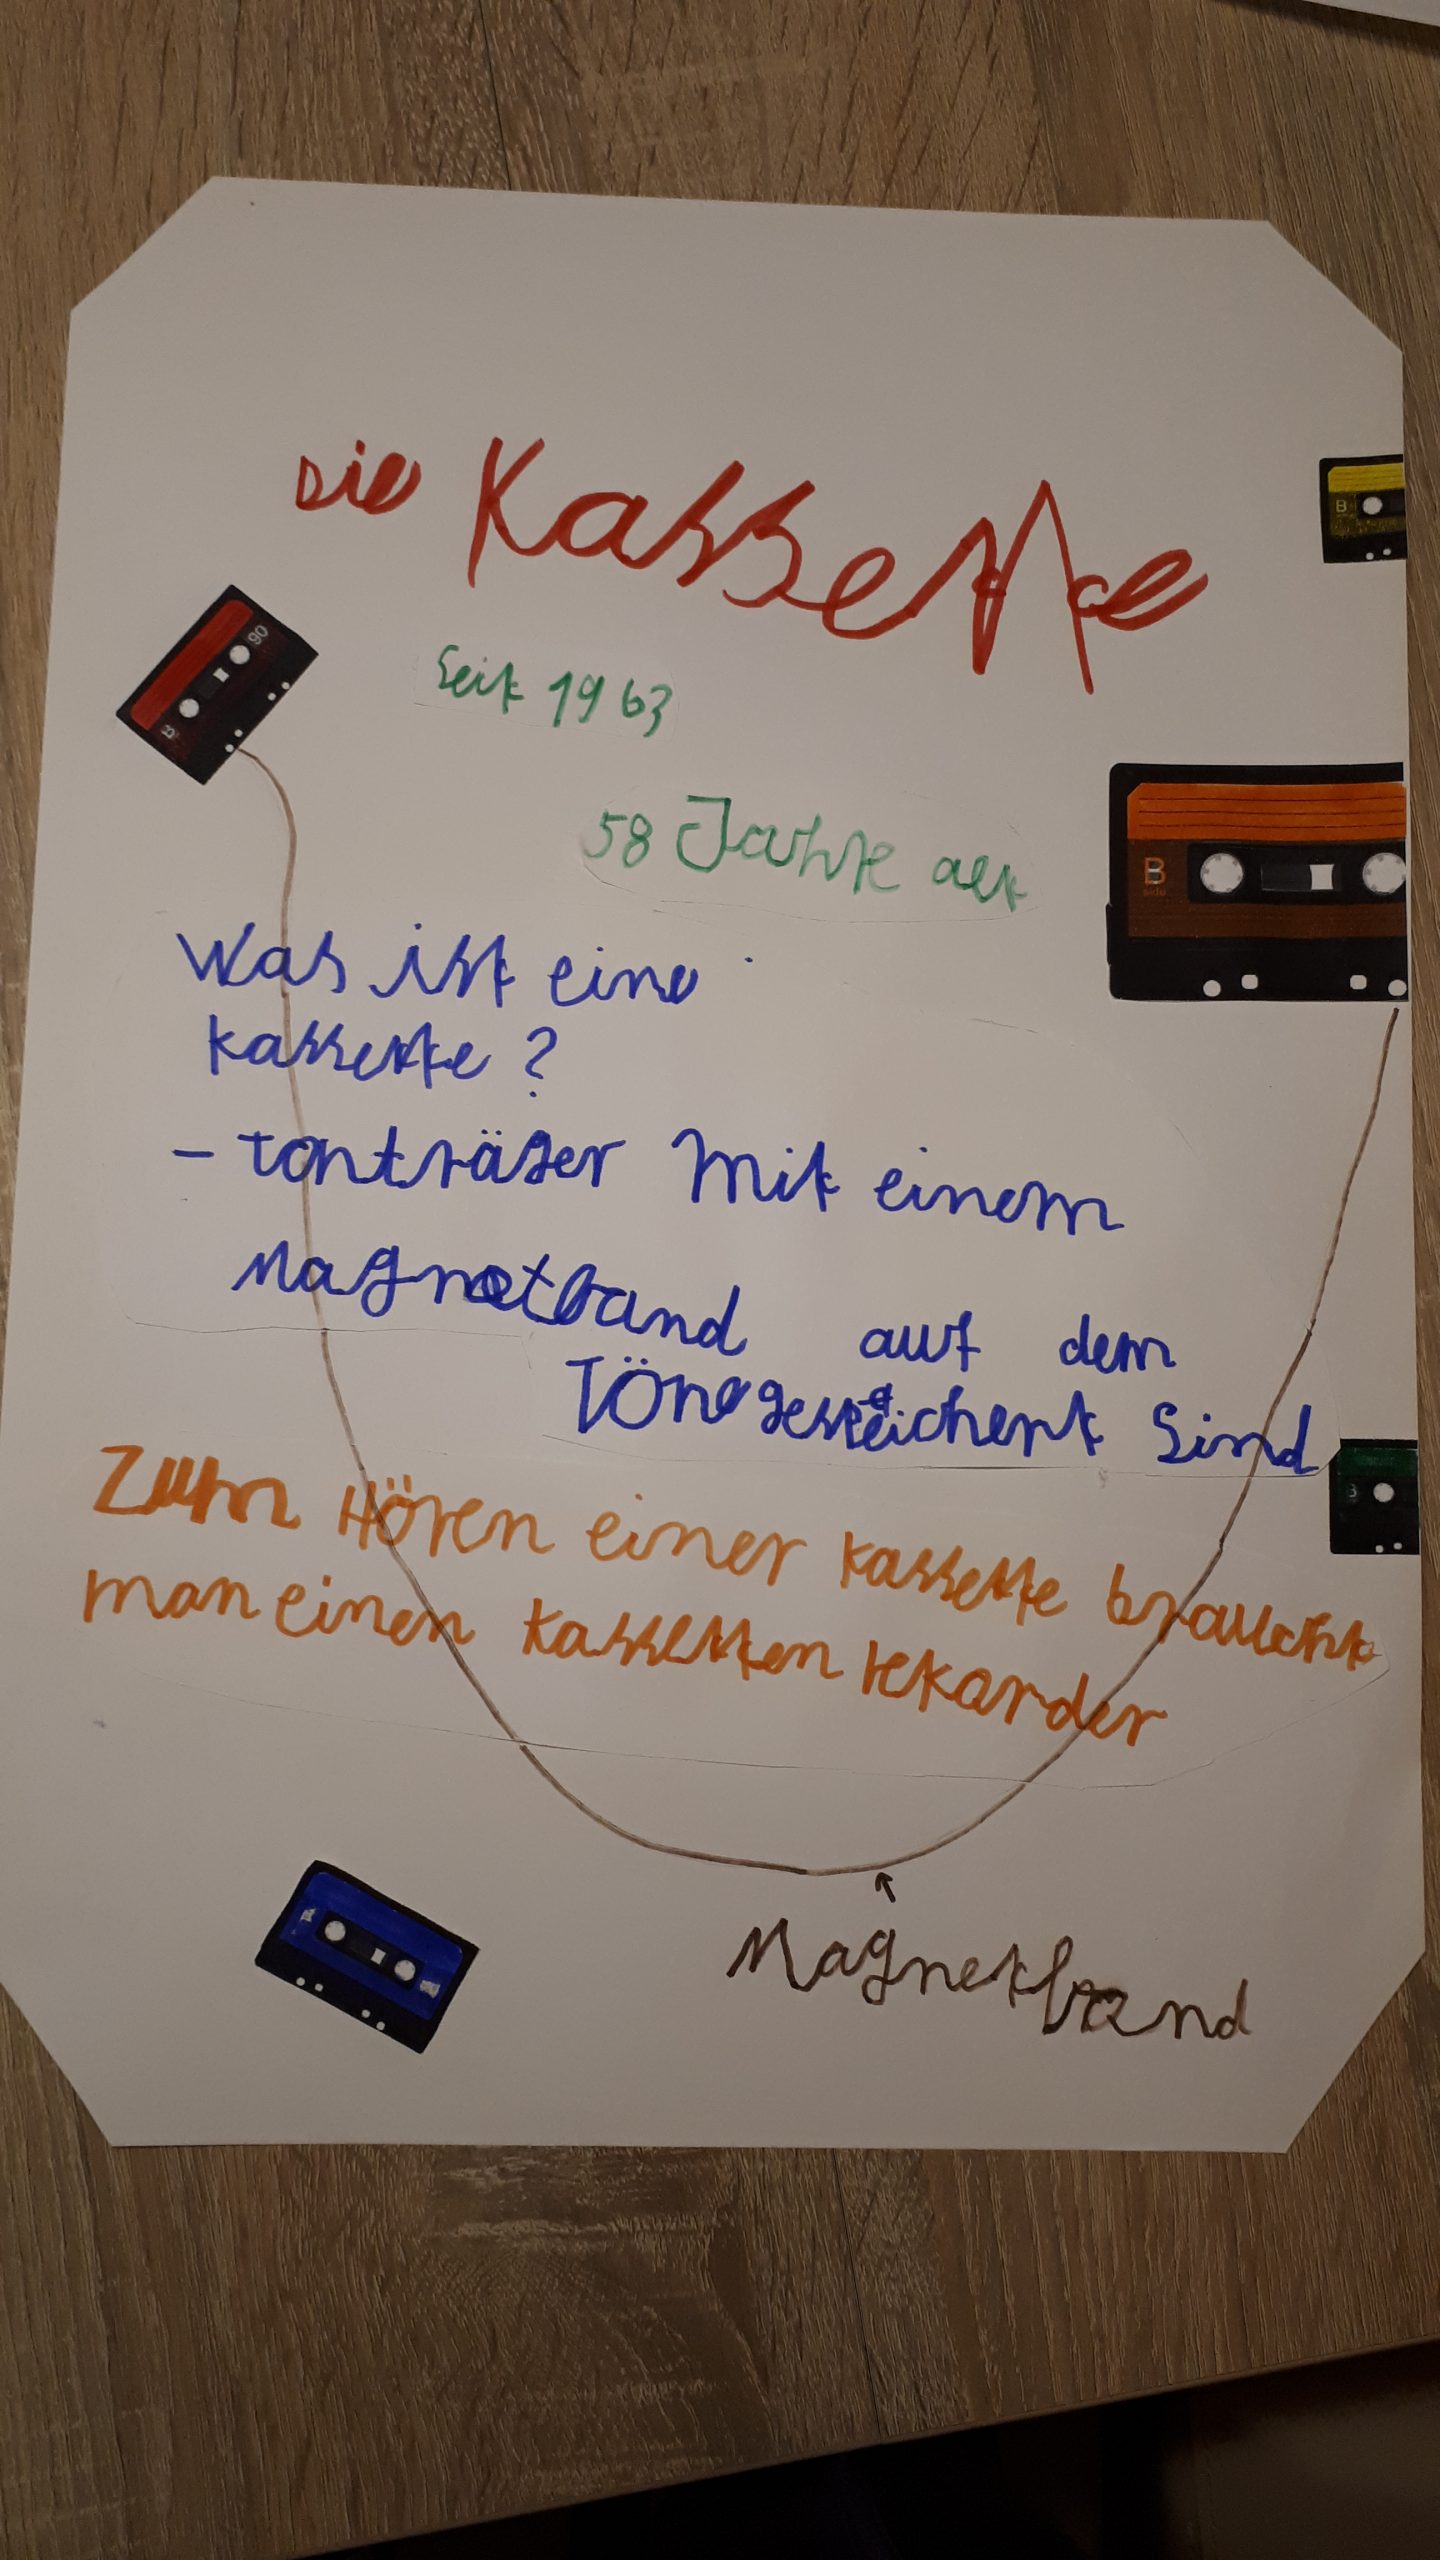 Die Kassette
Seit 1963
58 Jahre alt
Was ist eine
Kassette?
- Tonträger Mit einem
Magnetband auf dem
Töne gespeichert Sind
Zum Hören einer Kassette braucht
man einen Kassetten rekorder
Magnetband
90
B
B
B side
B